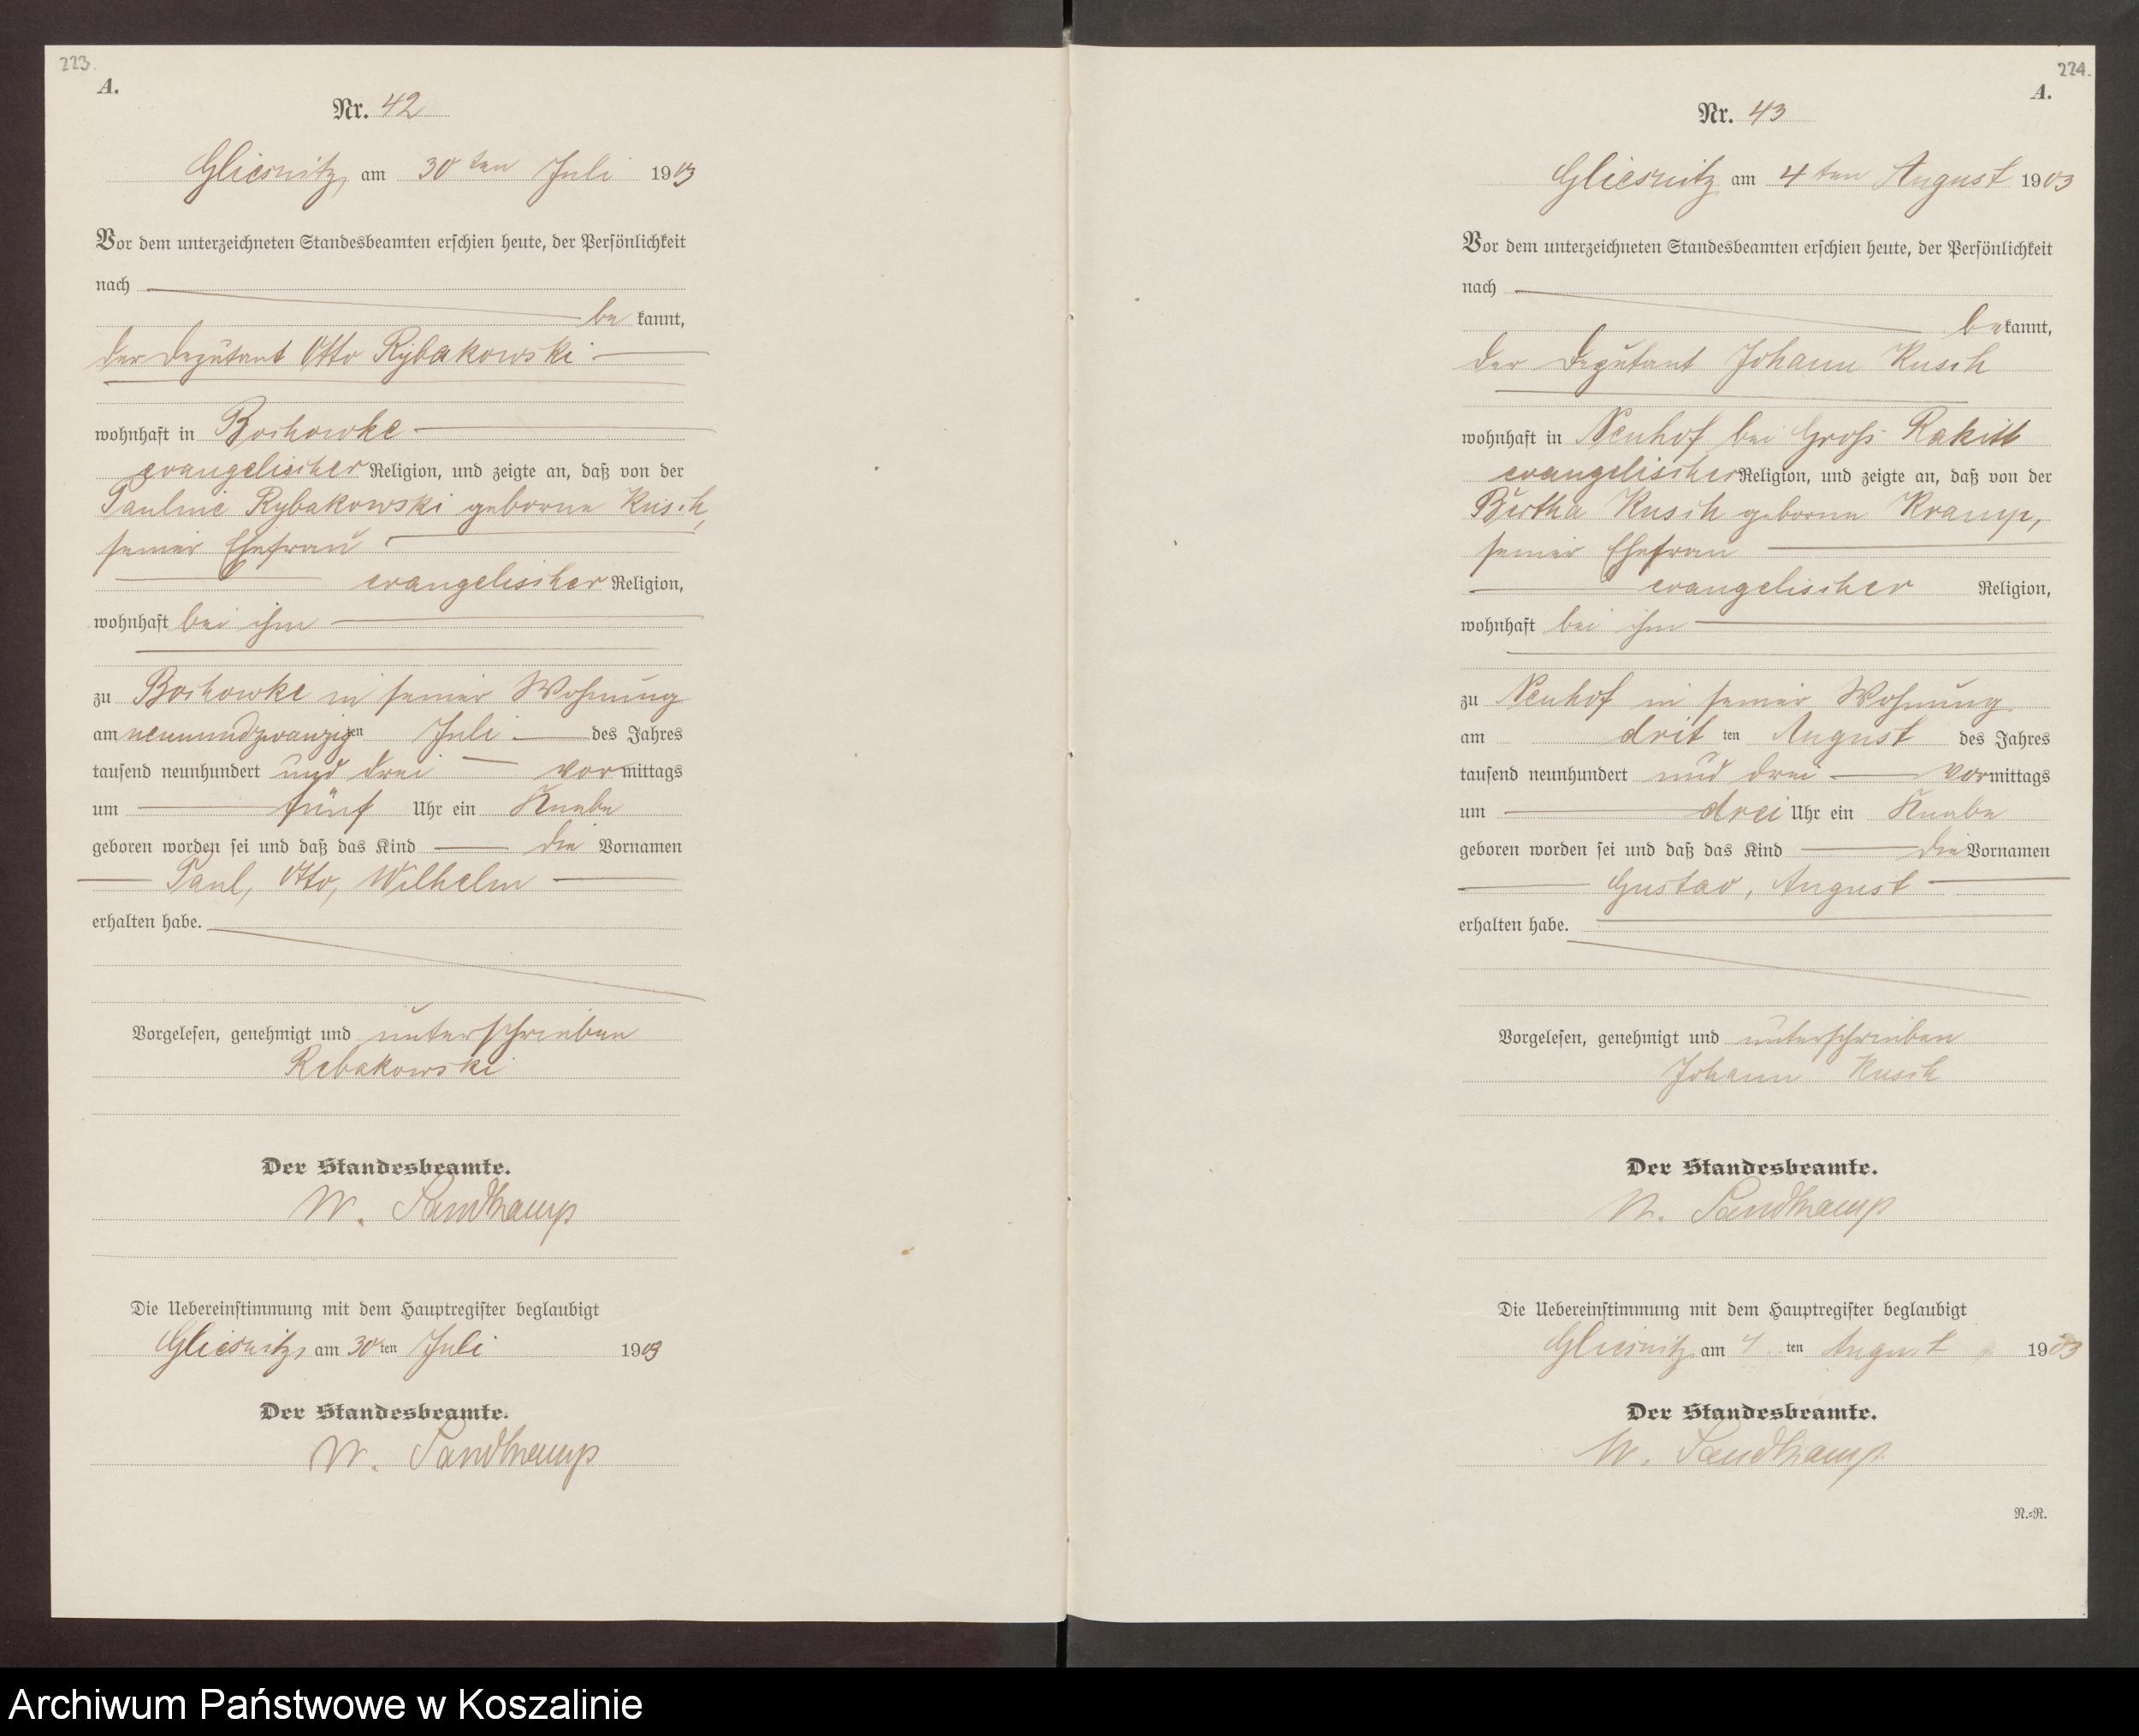 223.
A.
Nr. 42
Gliesnitz, am 30ten Juli 1903
Vor dem unterzeichneten Standesbeamten erschien heute, der Persönlichkeit
nach
be kannt,
der Deputant Otto Rybakowski
wohnhaft in Bochowke
evangelischer Religion, und zeigte an, daß von der
Pauline Rybakowski geborne Kusch,
seiner Ehefrau
evangelischer Religion,
wohnhaft bei ihm
zu Bochowke in seiner Wohnung
am neunundzwanzigten Juli des Jahres
tausend neunhundert und drei vormittags
um fünf Uhr ein Knabe
geboren worden sei und daß das Kind die Vornamen
Paul, Otto, Wilhelm
erhalten habe.
Vorgelesen, genehmigt und unterschrieben
Rebakowski
Der Standesbeamte.
W. Sandkamp
Die Uebereinstimmung mit dem Hauptregister beglaubigt
Gliesnitz, am 30ten Juli 1903
Der Standesbeamte.
W. Sandkamp
224.
A.
Nr. 43
Gliesnitz am 4ten August 1903
Vor dem unterzeichneten Standesbeamten erschien heute, der Persönlichkeit
nach
bekannt,
der Deputant Johann Kusch
wohnhaft in Neuhof bei Groß Rakitt
evangelischer Religion, und zeigte an, daß von der
Bertha Kusch geborne Kramp,
seiner Ehefrau
evangelischer Religion,
wohnhaft bei ihm
zu Neuhof in seiner Wohnung
am dritten August des Jahres
tausend neunhundert und drei vormittags
um drei Uhr ein Knabe
geboren worden sei und daß das Kind die Vornamen
Gustav, August
erhalten habe.
Vorgelesen, genehmigt und unterschrieben
Johann Kusch
Der Standesbeamte.
W. Sandkamp
Die Uebereinstimmung mit dem Hauptregister beglaubigt
Gliesnitz am 4ten August 1903
Der Standesbeamte.
W. Sandkamp
N.=N.
Archiwum Państwowe w Koszalinie